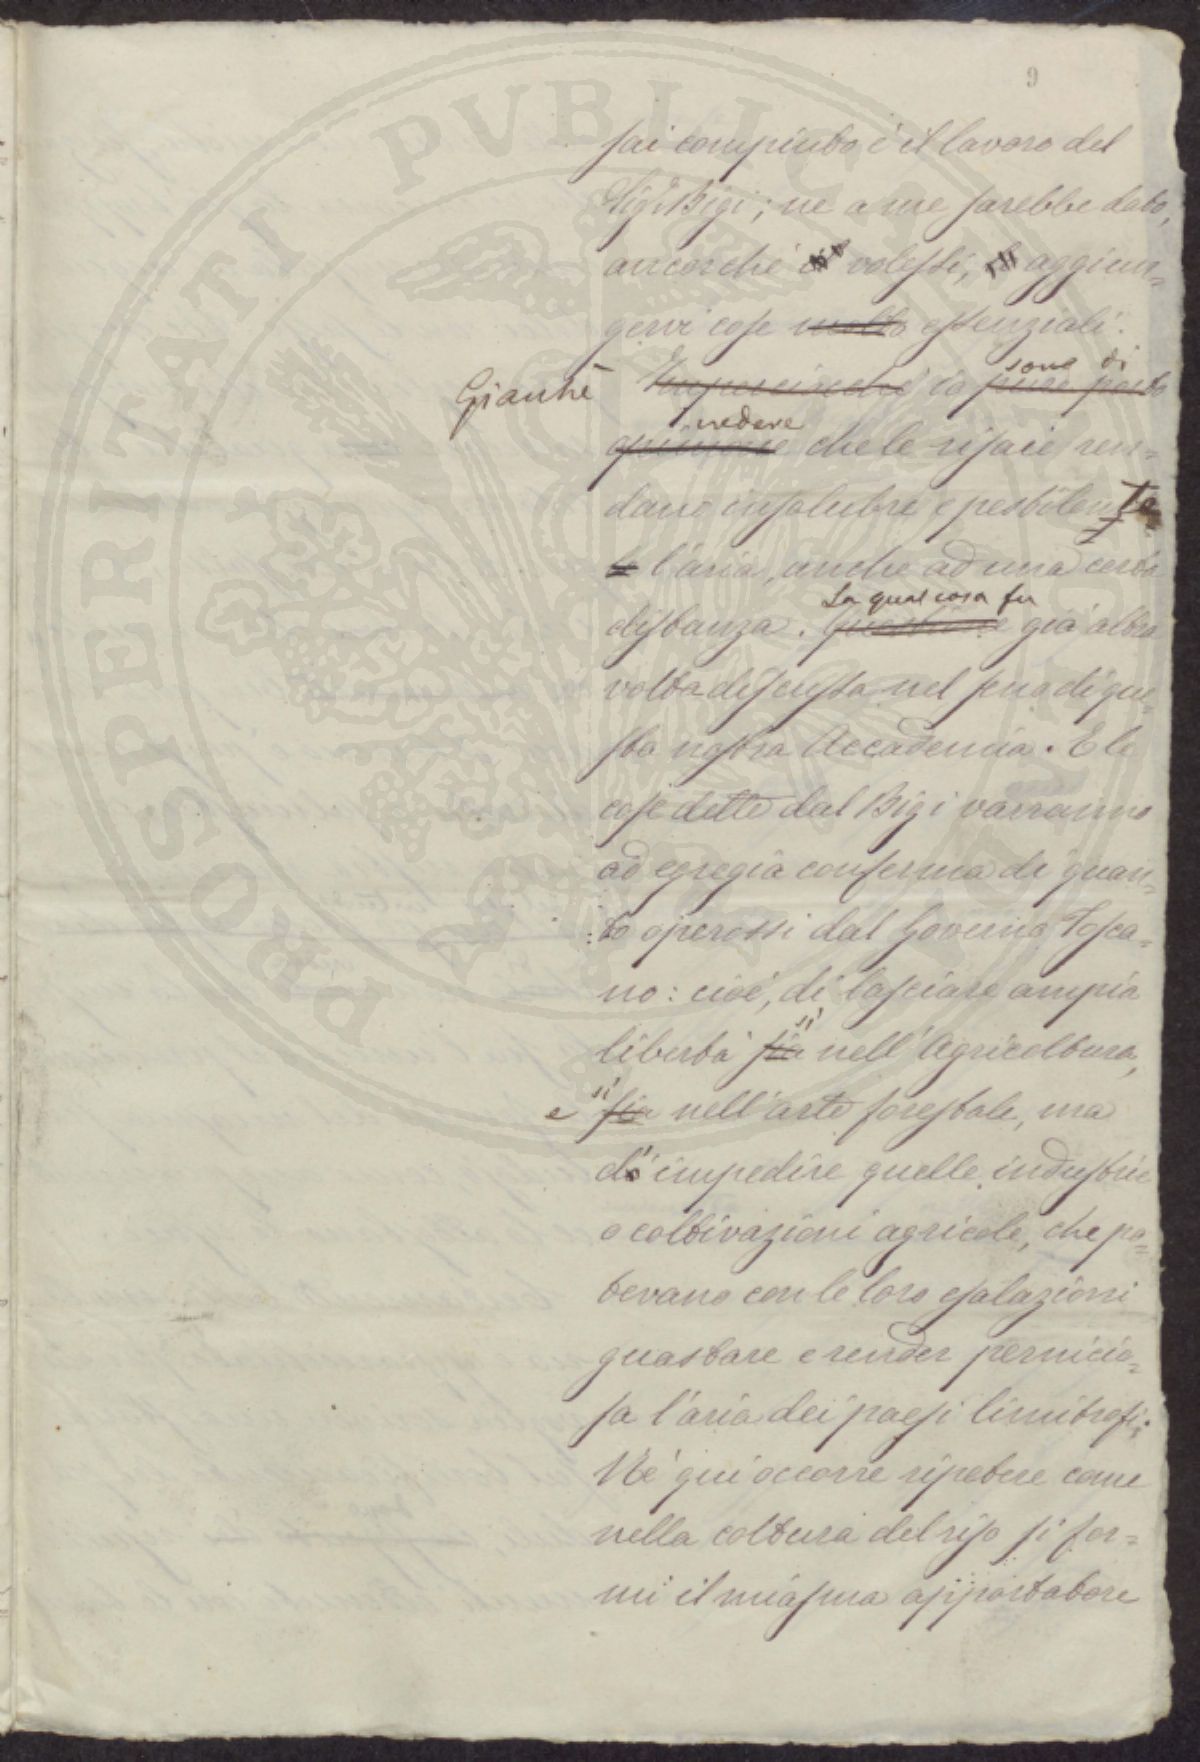 9
sai compiuto è il lavoro del
Sig. Bigi; ne a me sarebbe dato,
ancorché volessi, aggiun=
gervi cose molto essenziali.
Gianché Imperciocché io sono di
parte
vedere
opinione che le risaie ren=
dano insalubre e pestilente
le l'aria, anche ad una certa
La qual cosa fu
distanza. Questione già altra
volta discussa nel seno di que=
sta nostra Accademia. E le
cose dette dal Bigi varranno
ad egregia conferma di quan=
:to operossi dal Governo Tosca=
no: cioè, di lasciare ampia
libertà sia sì nell'Agricoltura,
e sì sia nell'arte forestale, ma
d'impedire quelle industrie
o coltivazioni agricole, che po=
tevano con le loro esalazioni
guastare e render pernicio=
sa l'aria dei paesi limitrofi;
Né qui occorre ripetere come
nella coltura del riso si for=
mi il miasma apportatore
PROSPERITATI PVBLICAE